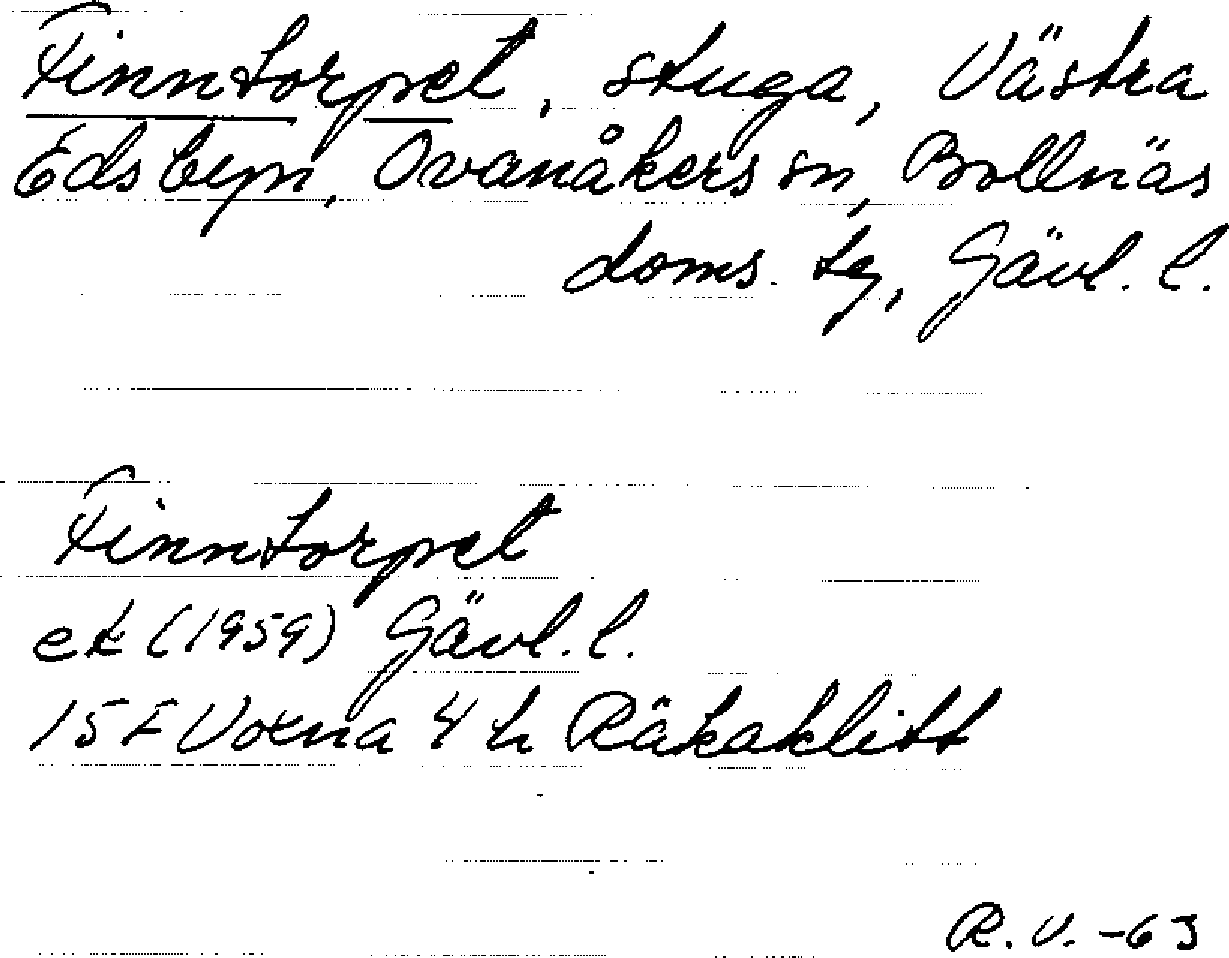 Finntorpet, stuga, Västra
Edsbyn, Ovanåkers sn, Bollnäs
doms. tg, Gävl. l.
Finntorpet
ek (1959) Gävl. l.
15F Voxna 4 h Räkaklitt
R.V. -63